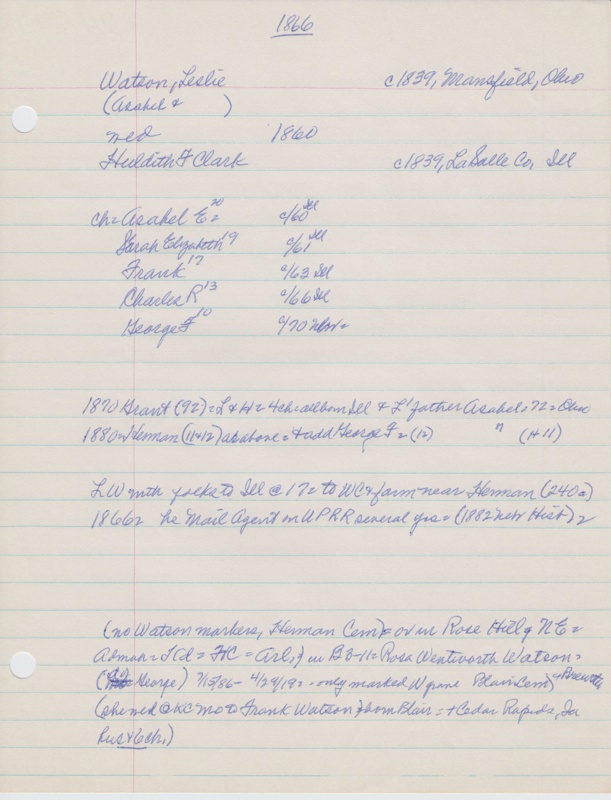 1866
Watson, Leslie c1839, Mansfield, Ohio
(Asahel & )
med 1860
Huldith F Clark c1839, LaSalle Co, Ill
ch= Asahel E= 20 c/60 Ill
Sarah Elizabeth 19 c/61 Ill
Frank 17 c/63 Ill
Charles R 13 c/66 Ill
George F 10 c/70 Nebr=
1870 Grant (92)= L & H= 4ch= all born Ill & L' father Asahel, 72= Ohio
1880= Herman (11&12) as above= & add George F= (12) " (# 11)
LW with folks to Ill @ 17= to WC & farm near Herman (240a)
1866= he Mail Agent on UPRR several yrs= (1882 Nebr Hist)=
(no Watson markers, Herman Cem)= or in Rose Hill, NE=
Admah= Td= FC= Arl,) in B 3-11= Rosa Wentworth Watson=
( George) 7/15/86- 4/29/19= - only marked W grave Blair Cem)
(she med @ KC Mo to Frank Watson) born Blair= & Cedar Rapids, Ia
Bur & 6ch,)